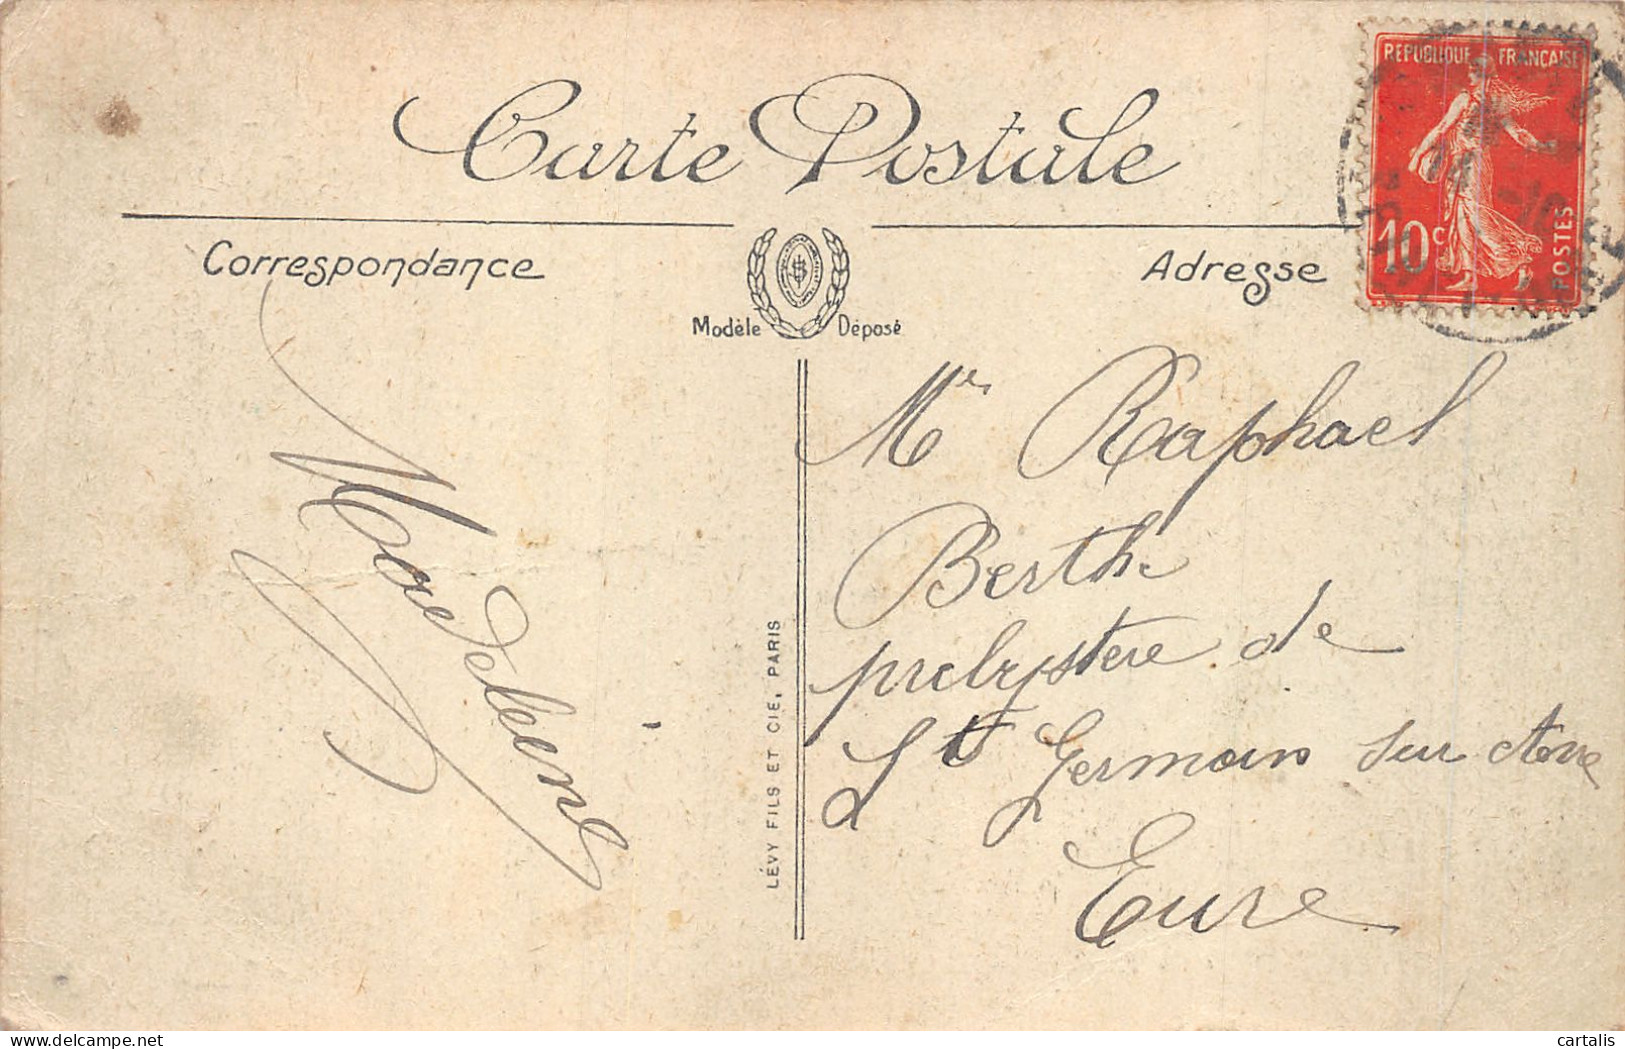 Carte Postale
Correspondance
Modèle Déposé
Adresse
REPUBLIQUE FRANÇAISE
10c
POSTES
14 -10
Madeleine
LÉVY FILS ET CIE, PARIS
Mr Raphael
Berth
presbytère de
St Germain sur Avre
Eure
cartalis